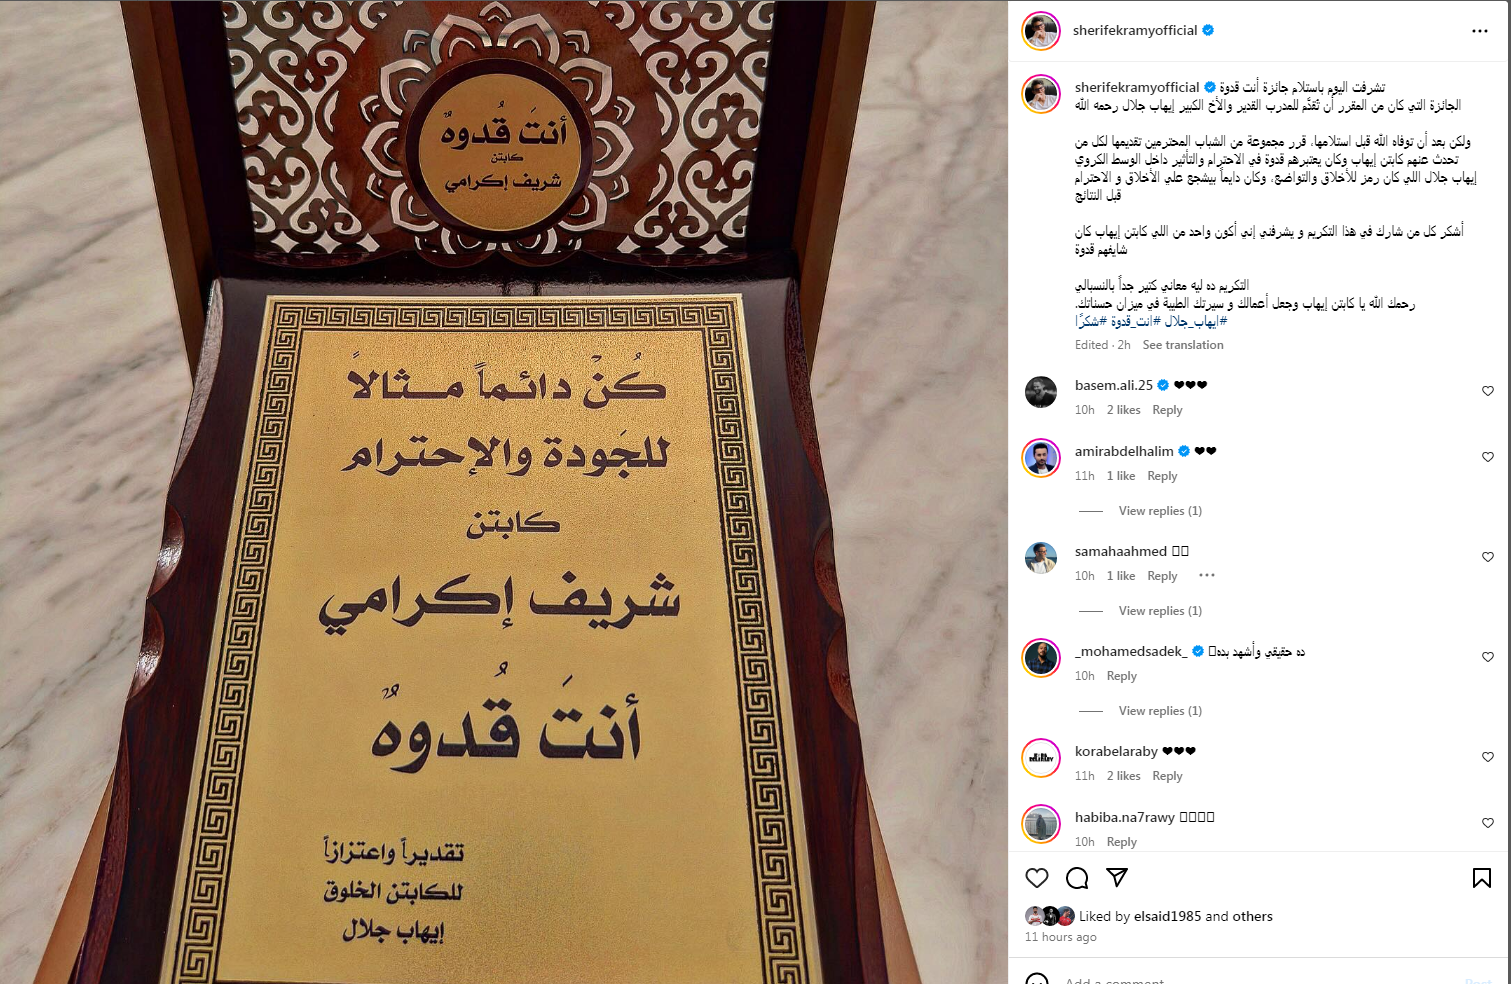 أنتَ قُدوهٌ
كابتن
شريف إكرامي
كُنْ دائماً مثالاً
للجَودة والإحترام
كابتن
شريف إكرامي
أنتَ قُدوهٌ
تقديراً واعتزازاً
للكابتن الخلوق
إيهاب جلال
sherifekramyofficial
sherifekramyofficial تشرفت اليوم باستلام جائزة أنت قدوة
الجائزة التي كان من المقرر أن تُقدَّم للمدرب القدير والأخ الكبير إيهاب جلال رحمه الله
ولكن بعد أن توفاه الله قبل استلامها، قرر مجموعة من الشباب المحترمين تقديمها لكل من
تحدث عنهم كابتن إيهاب وكان يعتبرهم قدوة في الاحترام والتأثير داخل الوسط الكروي
إيهاب جلال اللي كان رمز للأخلاق والتواضع، وكان دايماً بيشجع علي الأخلاق و الاحترام
قبل النتائج
أشكر كل من شارك في هذا التكريم و يشرفني إني أكون واحد من اللي كابتن إيهاب كان
شايفهم قدوة
التكريم ده ليه معاني كتير جداً بالنسبالي
رحمك الله يا كابتن إيهاب وجعل أعمالك و سيرتك الطيبة في ميزان حسناتك.
#ايهاب_جلال #انت_قدوة #شكرًا
Edited · 2h See translation
basem.ali.25 ❤❤❤
10h 2 likes Reply
amirabdelhalim ❤❤
11h 1 like Reply
View replies (1)
samahaahmed
10h 1 like Reply
View replies (1)
_mohamedsadek_ ده حقيقي وأشهد بده
10h Reply
View replies (1)
korabelaraby ❤❤❤
11h 2 likes Reply
habiba.na7rawy
10h Reply
Liked by elsaid1985 and others
11 hours ago
Add a comment...
Post